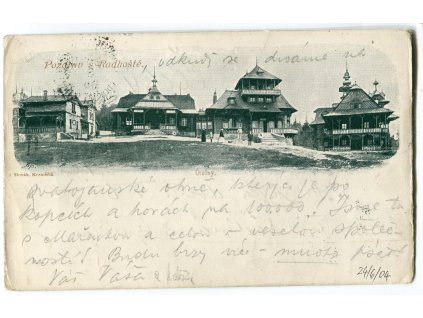 Pozdrav z Radhoště.
odkud se díváme na
Útulny.
svatojanské ohně, kterých je po
kopcích a horách na 100000. Jsme tu
s Mařenkou a celou veselou společ-
ností! Budu brzy víc psát
Váš Vaša
24/6/04